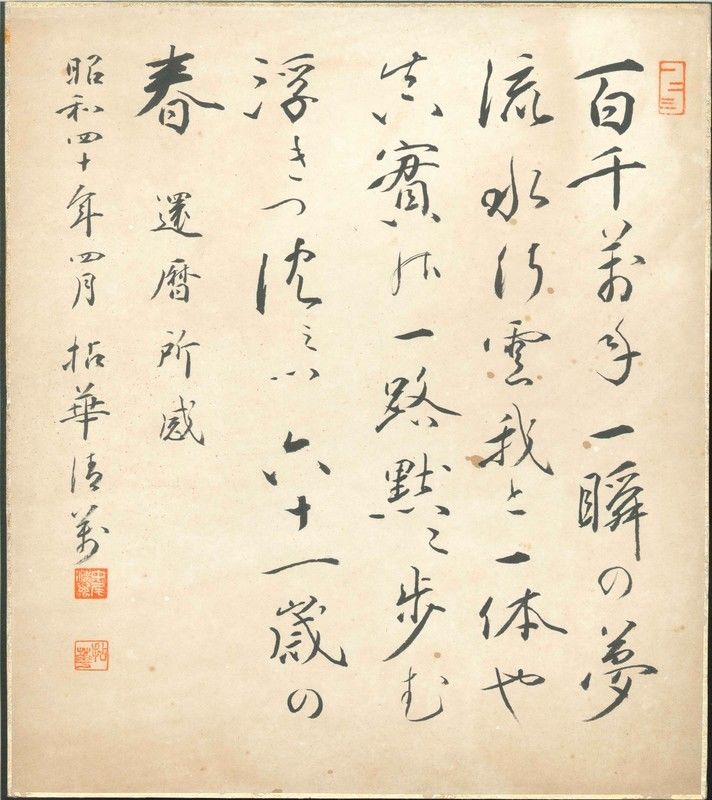 百千萬年一瞬の夢
流水行雲我と一体や
真實 一路黙々歩む
浮きつ沈ミつ六十一歳の
春 還暦所感
昭和四十年四月 拈華清萬